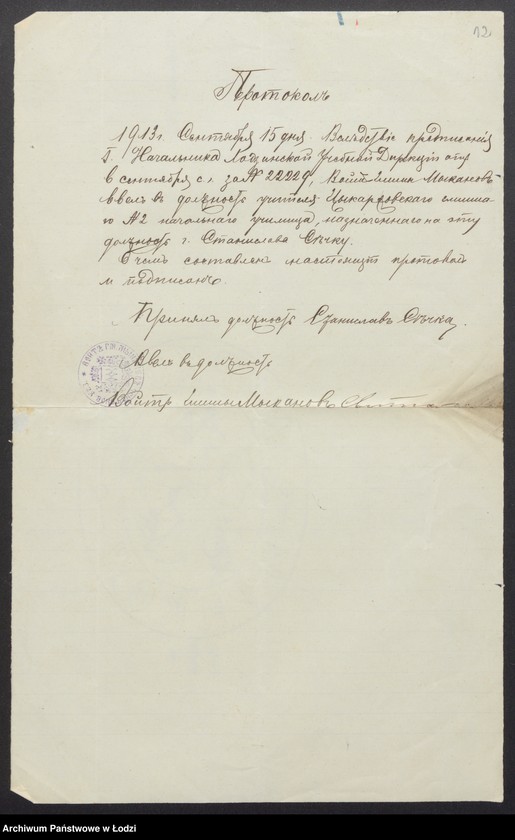 12
Протоколъ
1913 г. Сентября 15 дня. Вслѣдствіе предписанія
Г. Начальника Лодзинской Учебной Дирекціи отъ
6 сентября с. г. за № 22229, Войтъ гмины Мыкановъ
ввелъ въ должность учителя гмина-
го № 2 начальнаго училища, назначеннаго на эту
должность г. Станислава Сѣчку.
О чемъ составленъ настоящій протоколъ
и подписанъ.
Принялъ должность Станиславъ Сѣчка.
Ввелъ въ должность
Войтъ гмины Мыкановъ
Archiwum Państwowe w Łodzi